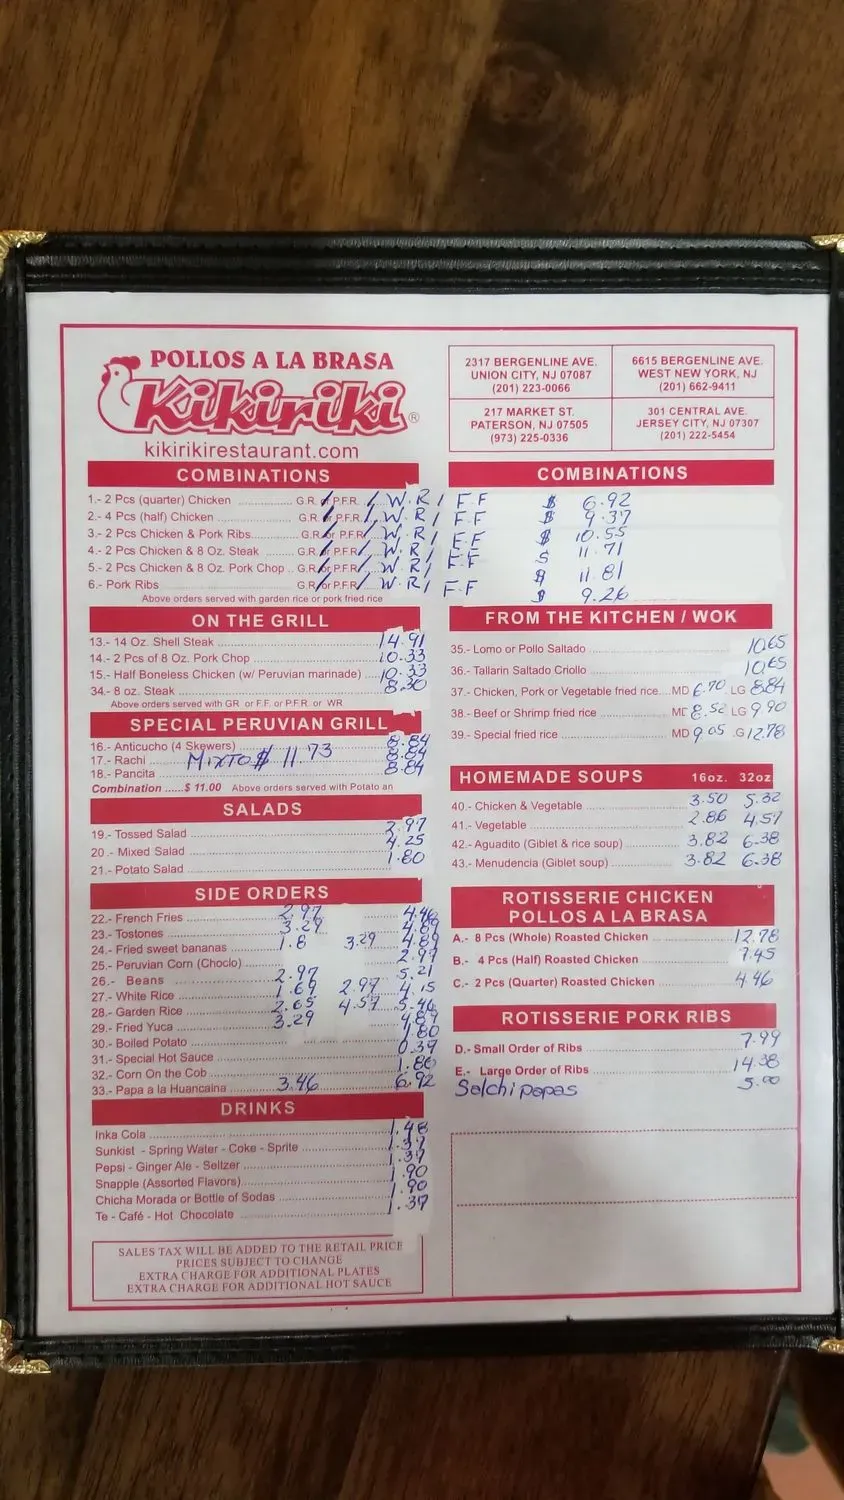 POLLOS A LA BRASA
Kikiriki®
kikirikirestaurant.com
2317 BERGENLINE AVE.
UNION CITY, NJ 07087
(201) 223-0066
6615 BERGENLINE AVE.
WEST NEW YORK, NJ
(201) 662-9411
217 MARKET ST.
PATERSON, NJ 07505
(973) 225-0336
301 CENTRAL AVE.
JERSEY CITY, NJ 07307
(201) 222-5454
COMBINATIONS
COMBINATIONS
1.- 2 Pcs (quarter) Chicken G.R. or P.F.R. / W.R / F.F $ 6.92
2.- 4 Pcs (half) Chicken G.R. or P.F.R. / W.R / F.F $ 9.37
3.- 2 Pcs Chicken & Pork Ribs G.R. or P.F.R. / W.R / F.F $ 10.55
4.- 2 Pcs Chicken & 8 Oz. Steak G.R. or P.F.R. / W.R / F.F $ 11.71
5.- 2 Pcs Chicken & 8 Oz. Pork Chop G.R. or P.F.R. / W.R / F.F $ 11.81
6.- Pork Ribs G.R. or P.F.R. / W.R / F.F $ 9.26
Above orders served with garden rice or pork fried rice
ON THE GRILL
13.- 14 Oz. Shell Steak 14.91
14.- 2 Pcs of 8 Oz. Pork Chop 10.33
15.- Half Boneless Chicken (w/ Peruvian marinade) 10.33
34.- 8 oz. Steak 8.30
Above orders served with GR or F.F. or P.F.R. or WR
SPECIAL PERUVIAN GRILL
16.- Anticucho (4 Skewers) 8.84
17.- Rachi MIXTO $ 11.73 8.84
18.- Pancita 8.84
Combination ..... $ 11.00 Above orders served with Potato an
SALADS
19.- Tossed Salad 2.97
20.- Mixed Salad 4.25
21.- Potato Salad 1.80
SIDE ORDERS
22.- French Fries 2.97 4.46
23.- Tostones 3.29 4.89
24.- Fried sweet bananas 1.8 3.29 4.89
25.- Peruvian Corn (Choclo) 2.97
26.- Beans 2.97 5.21
27.- White Rice 1.69 2.97 4.15
28.- Garden Rice 2.65 4.57 5.46
29.- Fried Yuca 3.29 4.89
30.- Boiled Potato 1.80
31.- Special Hot Sauce 0.37
32.- Corn On the Cob 1.80
33.- Papa a la Huancaina 3.46 6.92
DRINKS
Inka Cola 1.48
Sunkist - Spring Water - Coke - Sprite 1.37
Pepsi - Ginger Ale - Seltzer 1.37
Snapple (Assorted Flavors) 1.90
Chicha Morada or Bottle of Sodas 1.90
Te - Café - Hot Chocolate 1.37
SALES TAX WILL BE ADDED TO THE RETAIL PRICE
PRICES SUBJECT TO CHANGE
EXTRA CHARGE FOR ADDITIONAL PLATES
EXTRA CHARGE FOR ADDITIONAL HOT SAUCE
FROM THE KITCHEN / WOK
35.- Lomo or Pollo Saltado 10.65
36.- Tallarin Saltado Criollo 10.65
37.- Chicken, Pork or Vegetable fried rice MD 6.70 LG 8.84
38.- Beef or Shrimp fried rice MD 8.52 LG 9.90
39.- Special fried rice MD 9.05 .G 12.78
HOMEMADE SOUPS 16oz. 32oz.
40.- Chicken & Vegetable 3.50 5.32
41.- Vegetable 2.86 4.57
42.- Aguadito (Giblet & rice soup) 3.82 6.38
43.- Menudencia (Giblet soup) 3.82 6.38
ROTISSERIE CHICKEN
POLLOS A LA BRASA
A.- 8 Pcs (Whole) Roasted Chicken 12.78
B.- 4 Pcs (Half) Roasted Chicken 7.45
C.- 2 Pcs (Quarter) Roasted Chicken 4.46
ROTISSERIE PORK RIBS
D.- Small Order of Ribs 7.99
E.- Large Order of Ribs 14.38
Salchipapas 5.00